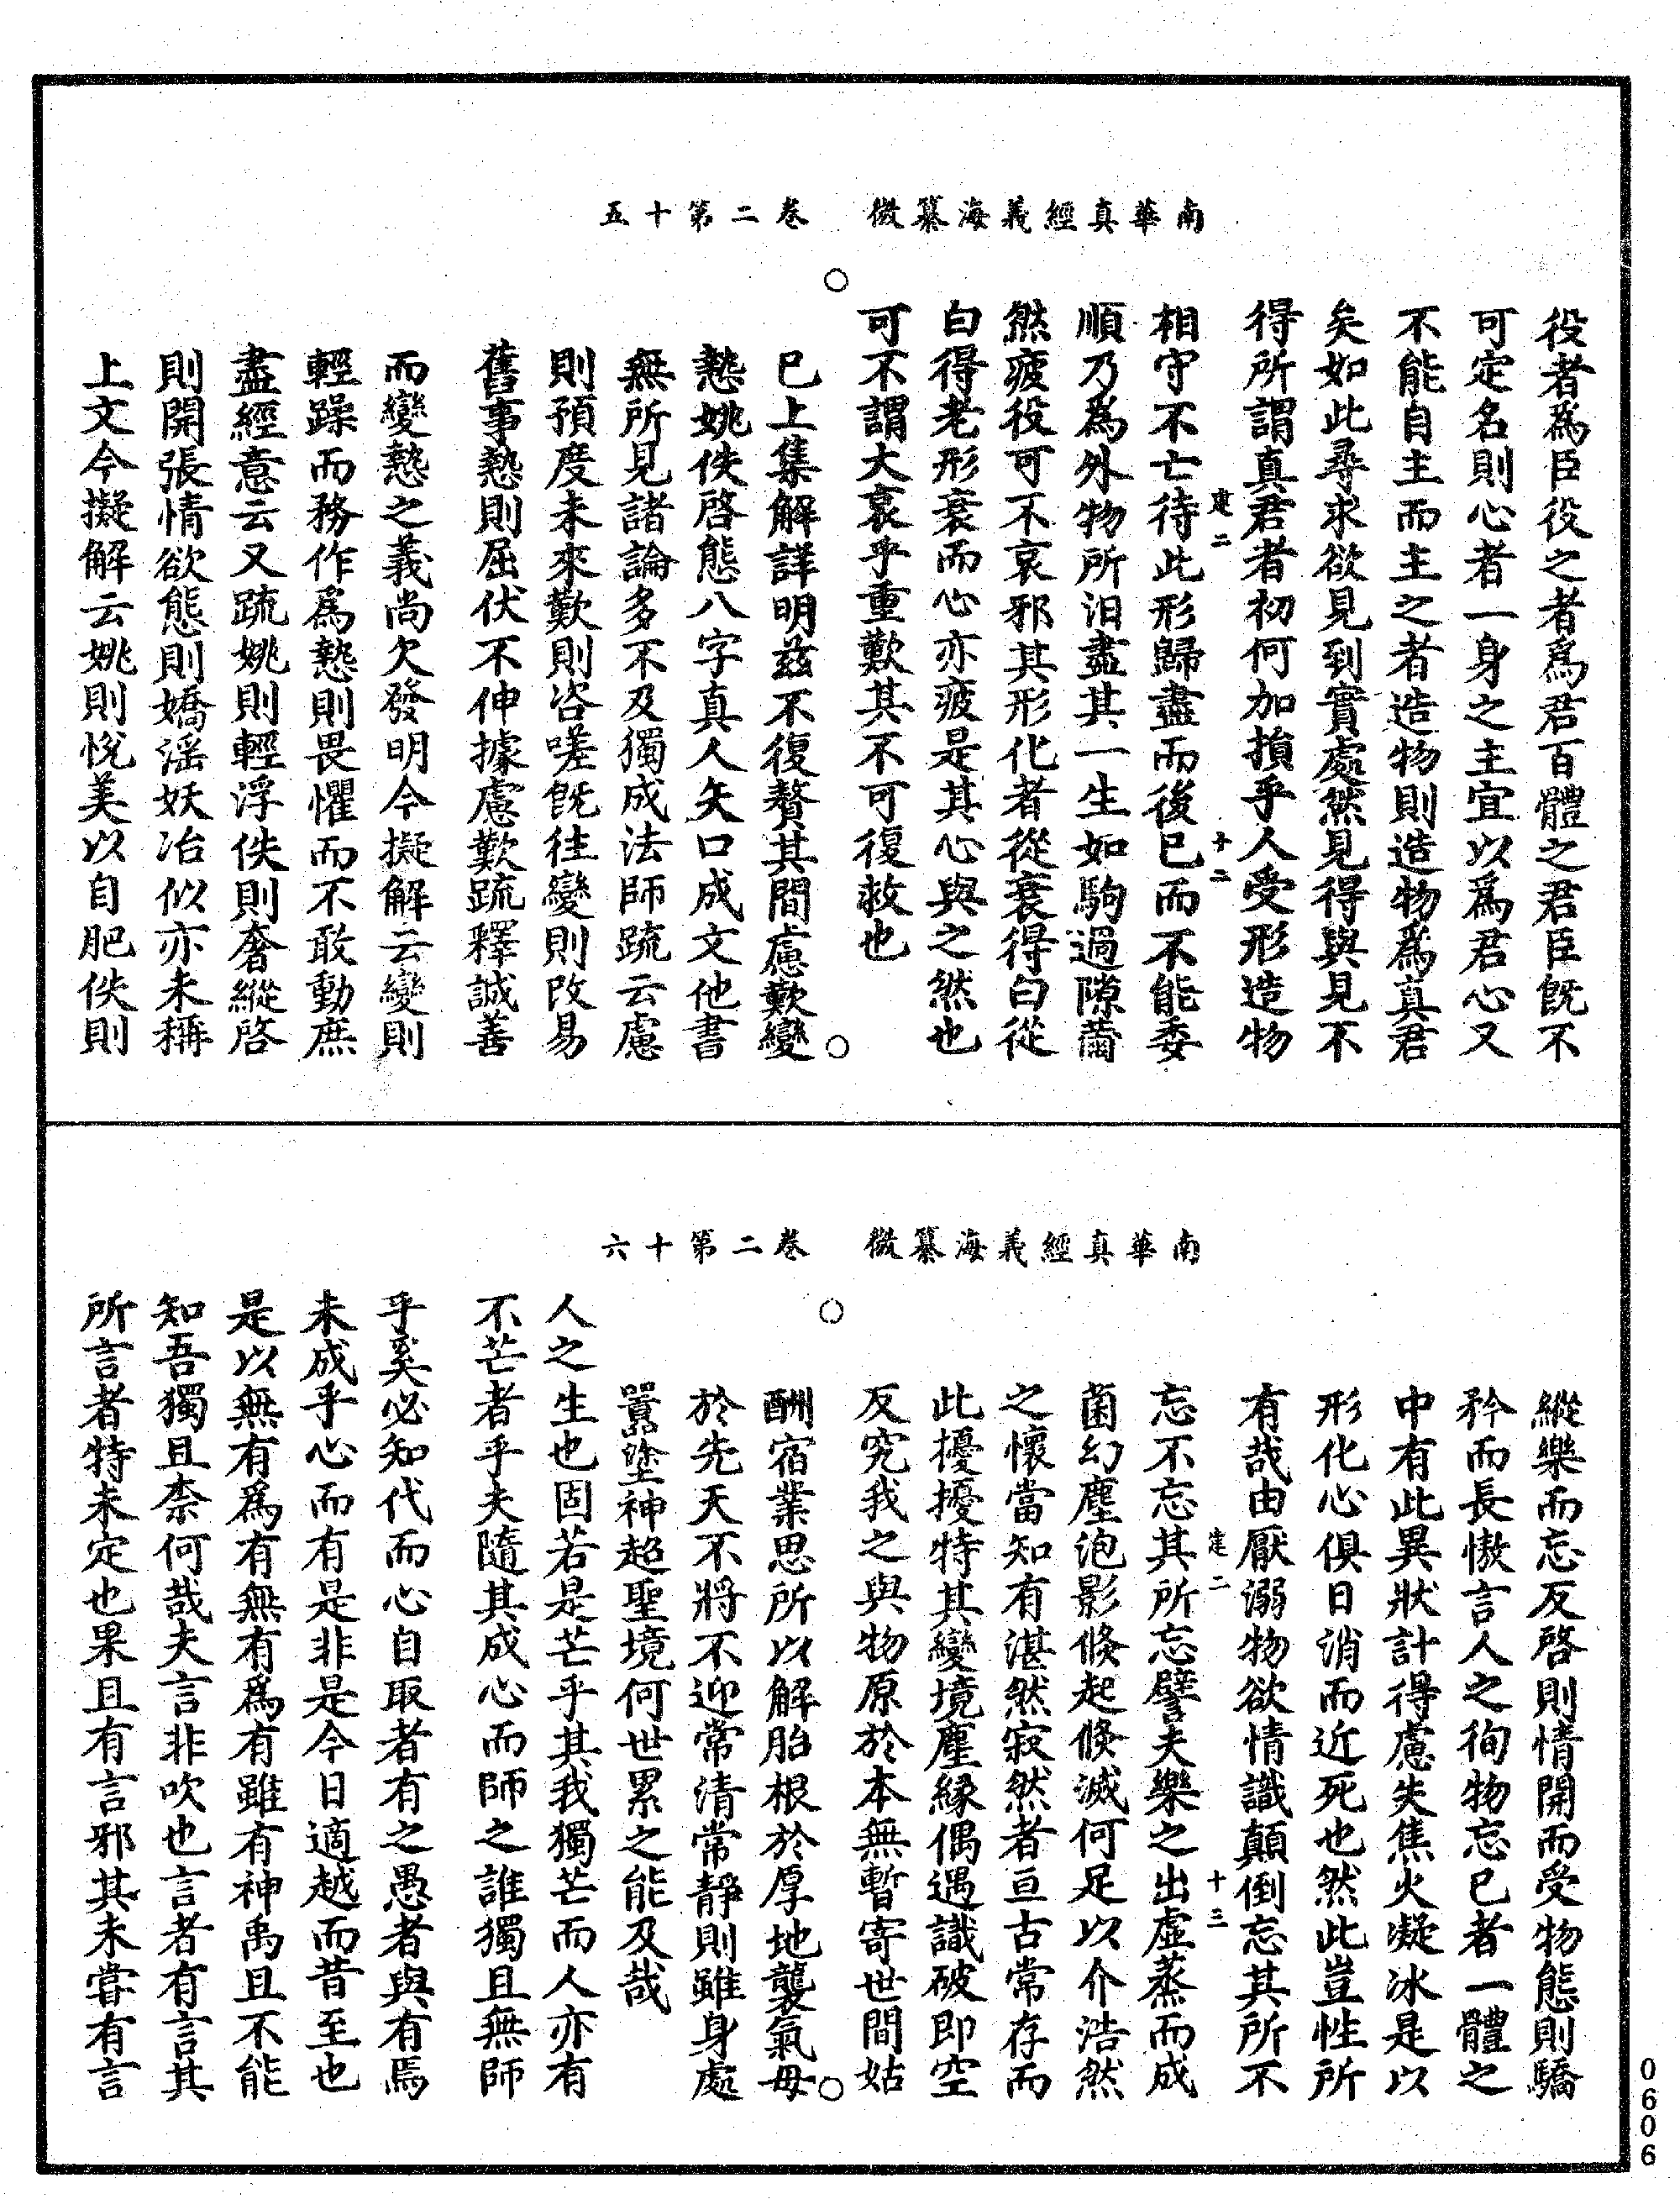 南華真經義海纂微　卷二第十五
役者爲臣役之者爲君百體之君臣旣不
可定名則心者一身之主宜以爲君心又
不能自主而主之者造物則造物爲真君
矣如此尋求欲見到實處然見得與見不
得所謂真君者初何加損乎人受形造物
建二　十二
相守不亡待此形歸盡而後已而不能委
順乃爲外物所汨盡其一生如駒過隙薾
然疲役可不哀邪其形化者從衰得白從
白得老形衰而心亦疲是其心與之然也
可不謂大哀乎重歎其不可復救也
○　○
已上集解詳明茲不復贅其間慮歎變
慹姚佚啓態八字真人矢口成文他書
無所見諸論多不及獨成法師疏云慮
則預度未來歎則咨嗟旣往變則改易
舊事慹則屈伏不伸據慮歎疏釋誠善
而變慹之義尚欠發明今擬解云變則
輕躁而務作爲慹則畏懼而不敢動庶
盡經意云又疏姚則輕浮佚則奢縱啓
則開張情欲態則嬌淫妖冶似亦未稱
上文今擬解云姚則悅美以自肥佚則
南華真經義海纂微　卷二第十六
縱樂而忘反啓則情開而受物態則驕
矜而長慠言人之徇物忘已者一體之
中有此異狀計得慮失焦火凝冰是以
形化心俱日消而近死也然此豈性所
有哉由厭溺物欲情識顛倒忘其所不
建二　十三
忘不忘其所忘譬夫樂之出虛蒸而成
菌幻塵泡影倏起倏滅何足以介浩然
之懷當知有湛然寂然者亘古常存而
此擾擾特其變境塵緣偶遇識破即空
反究我之與物原於本無暫寄世間姑
○　○
酬宿業思所以解胎根於厚地襲氣母
於先天不將不迎常清常靜則雖身處
囂塗神超聖境何世累之能及哉
人之生也固若是芒乎其我獨芒而人亦有
不芒者乎夫隨其成心而師之誰獨且無師
乎奚必知代而心自取者有之愚者與有焉
未成乎心而有是非是今日適越而昔至也
是以無有爲有無有爲有雖有神禹且不能
知吾獨且柰何哉夫言非吹也言者有言其
所言者特未定也果且有言邪其未嘗有言
0606